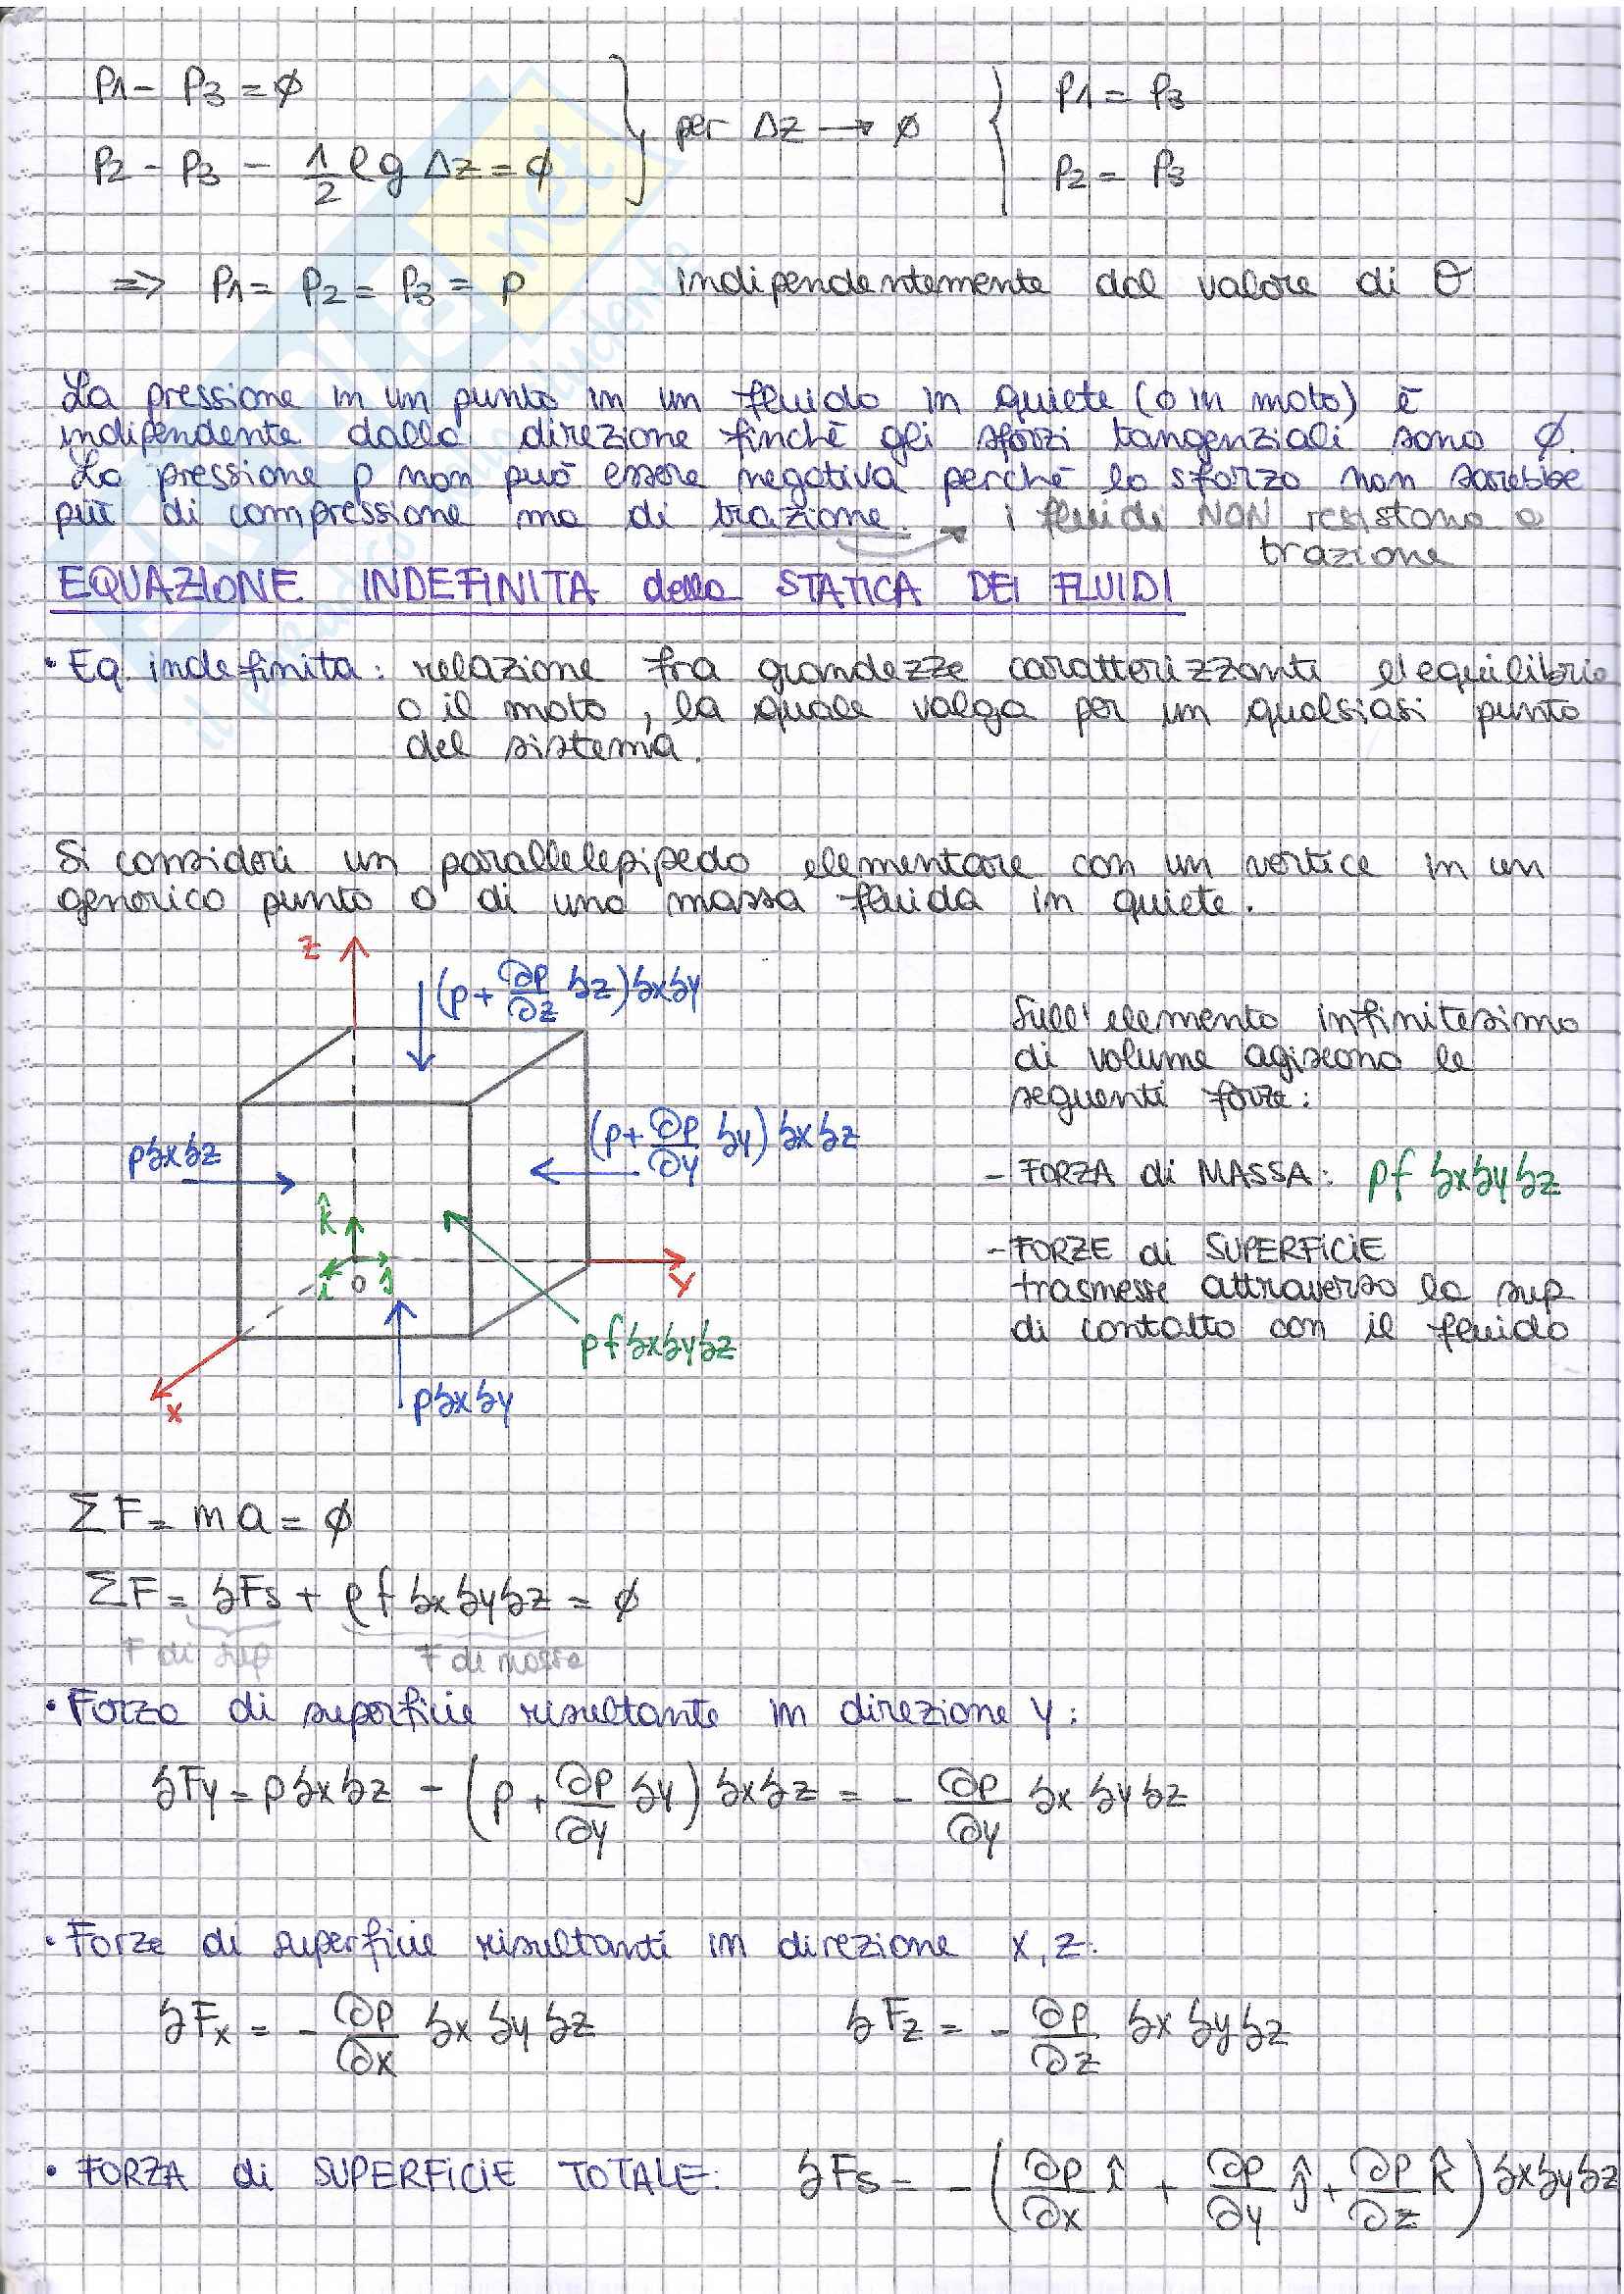 P1 - P3 = ∅
P2 - P3 - 1/2 ρg Δz = ∅
per Δz → ∅
P1 = P3
P2 = P3
=> P1 = P2 = P3 = P indipendentemente dal valore di θ
La pressione in un punto in un fluido in quiete (o in moto) è
indipendente dalla direzione finchè gli sforzi tangenziali sono ∅.
La pressione p non può essere negativa perchè lo sforzo non sarebbe
più di compressione ma di trazione. → i fluidi NON resistono a
trazione
EQUAZIONE INDEFINITA della STATICA DEI FLUIDI
• Eq. indefinita: relazione fra grandezze caratterizzanti l'equilibrio
o il moto, la quale valga per un qualsiasi punto
del sistema.
Si consideri un parallelepipedo elementare con un vertice in un
generico punto O di una massa fluida in quiete.
z
(p + ∂p/∂z δz) δxδy
(p + ∂p/∂y δy) δxδz
pδxδz
k̂
î
ĵ
O
y
ρf δxδyδz
x
pδxδy
Sull'elemento infinitesimo
di volume agiscono le
seguenti forze:
- FORZA di MASSA: ρf δxδyδz
- FORZE di SUPERFICIE
trasmesse attraverso la sup
di contatto con il fluido
ΣF = ma = ∅
ΣF = δFs + ρf δxδyδz = ∅
F di sup F di massa
• Forza di superficie risultante in direzione y:
δFy = pδxδz - (p + ∂p/∂y δy) δxδz = - ∂p/∂y δx δyδz
• Forze di superficie risultanti in direzione x, z:
δFx = - ∂p/∂x δx δy δz δFz = - ∂p/∂z δx δyδz
• FORZA di SUPERFICIE TOTALE: δFs = - (∂p/∂x î + ∂p/∂y ĵ + ∂p/∂z k̂) δxδyδz